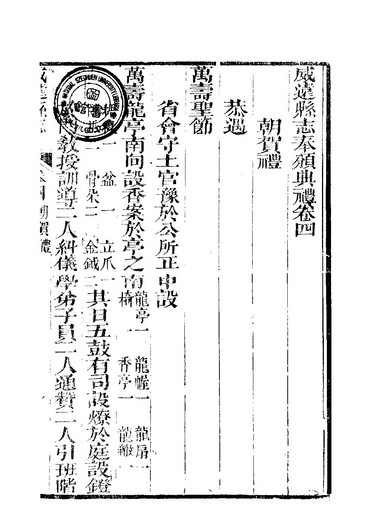 威遠縣志奉頒典禮卷四
朝賀禮
恭遇
萬壽聖節
省會守土官豫於公所正中設
萬壽龍亭南向設香案於亭之南龍亭一 龍幄一 龍扇一 椅一 香亭一 龍緻一
盆一 立爪二 骨朵二 金鉞二其日五鼓有司設燎於庭設鐙
教授訓導二人糾儀學弟子員二人通贊二人引班階
威遠縣志 卷四朝賀禮